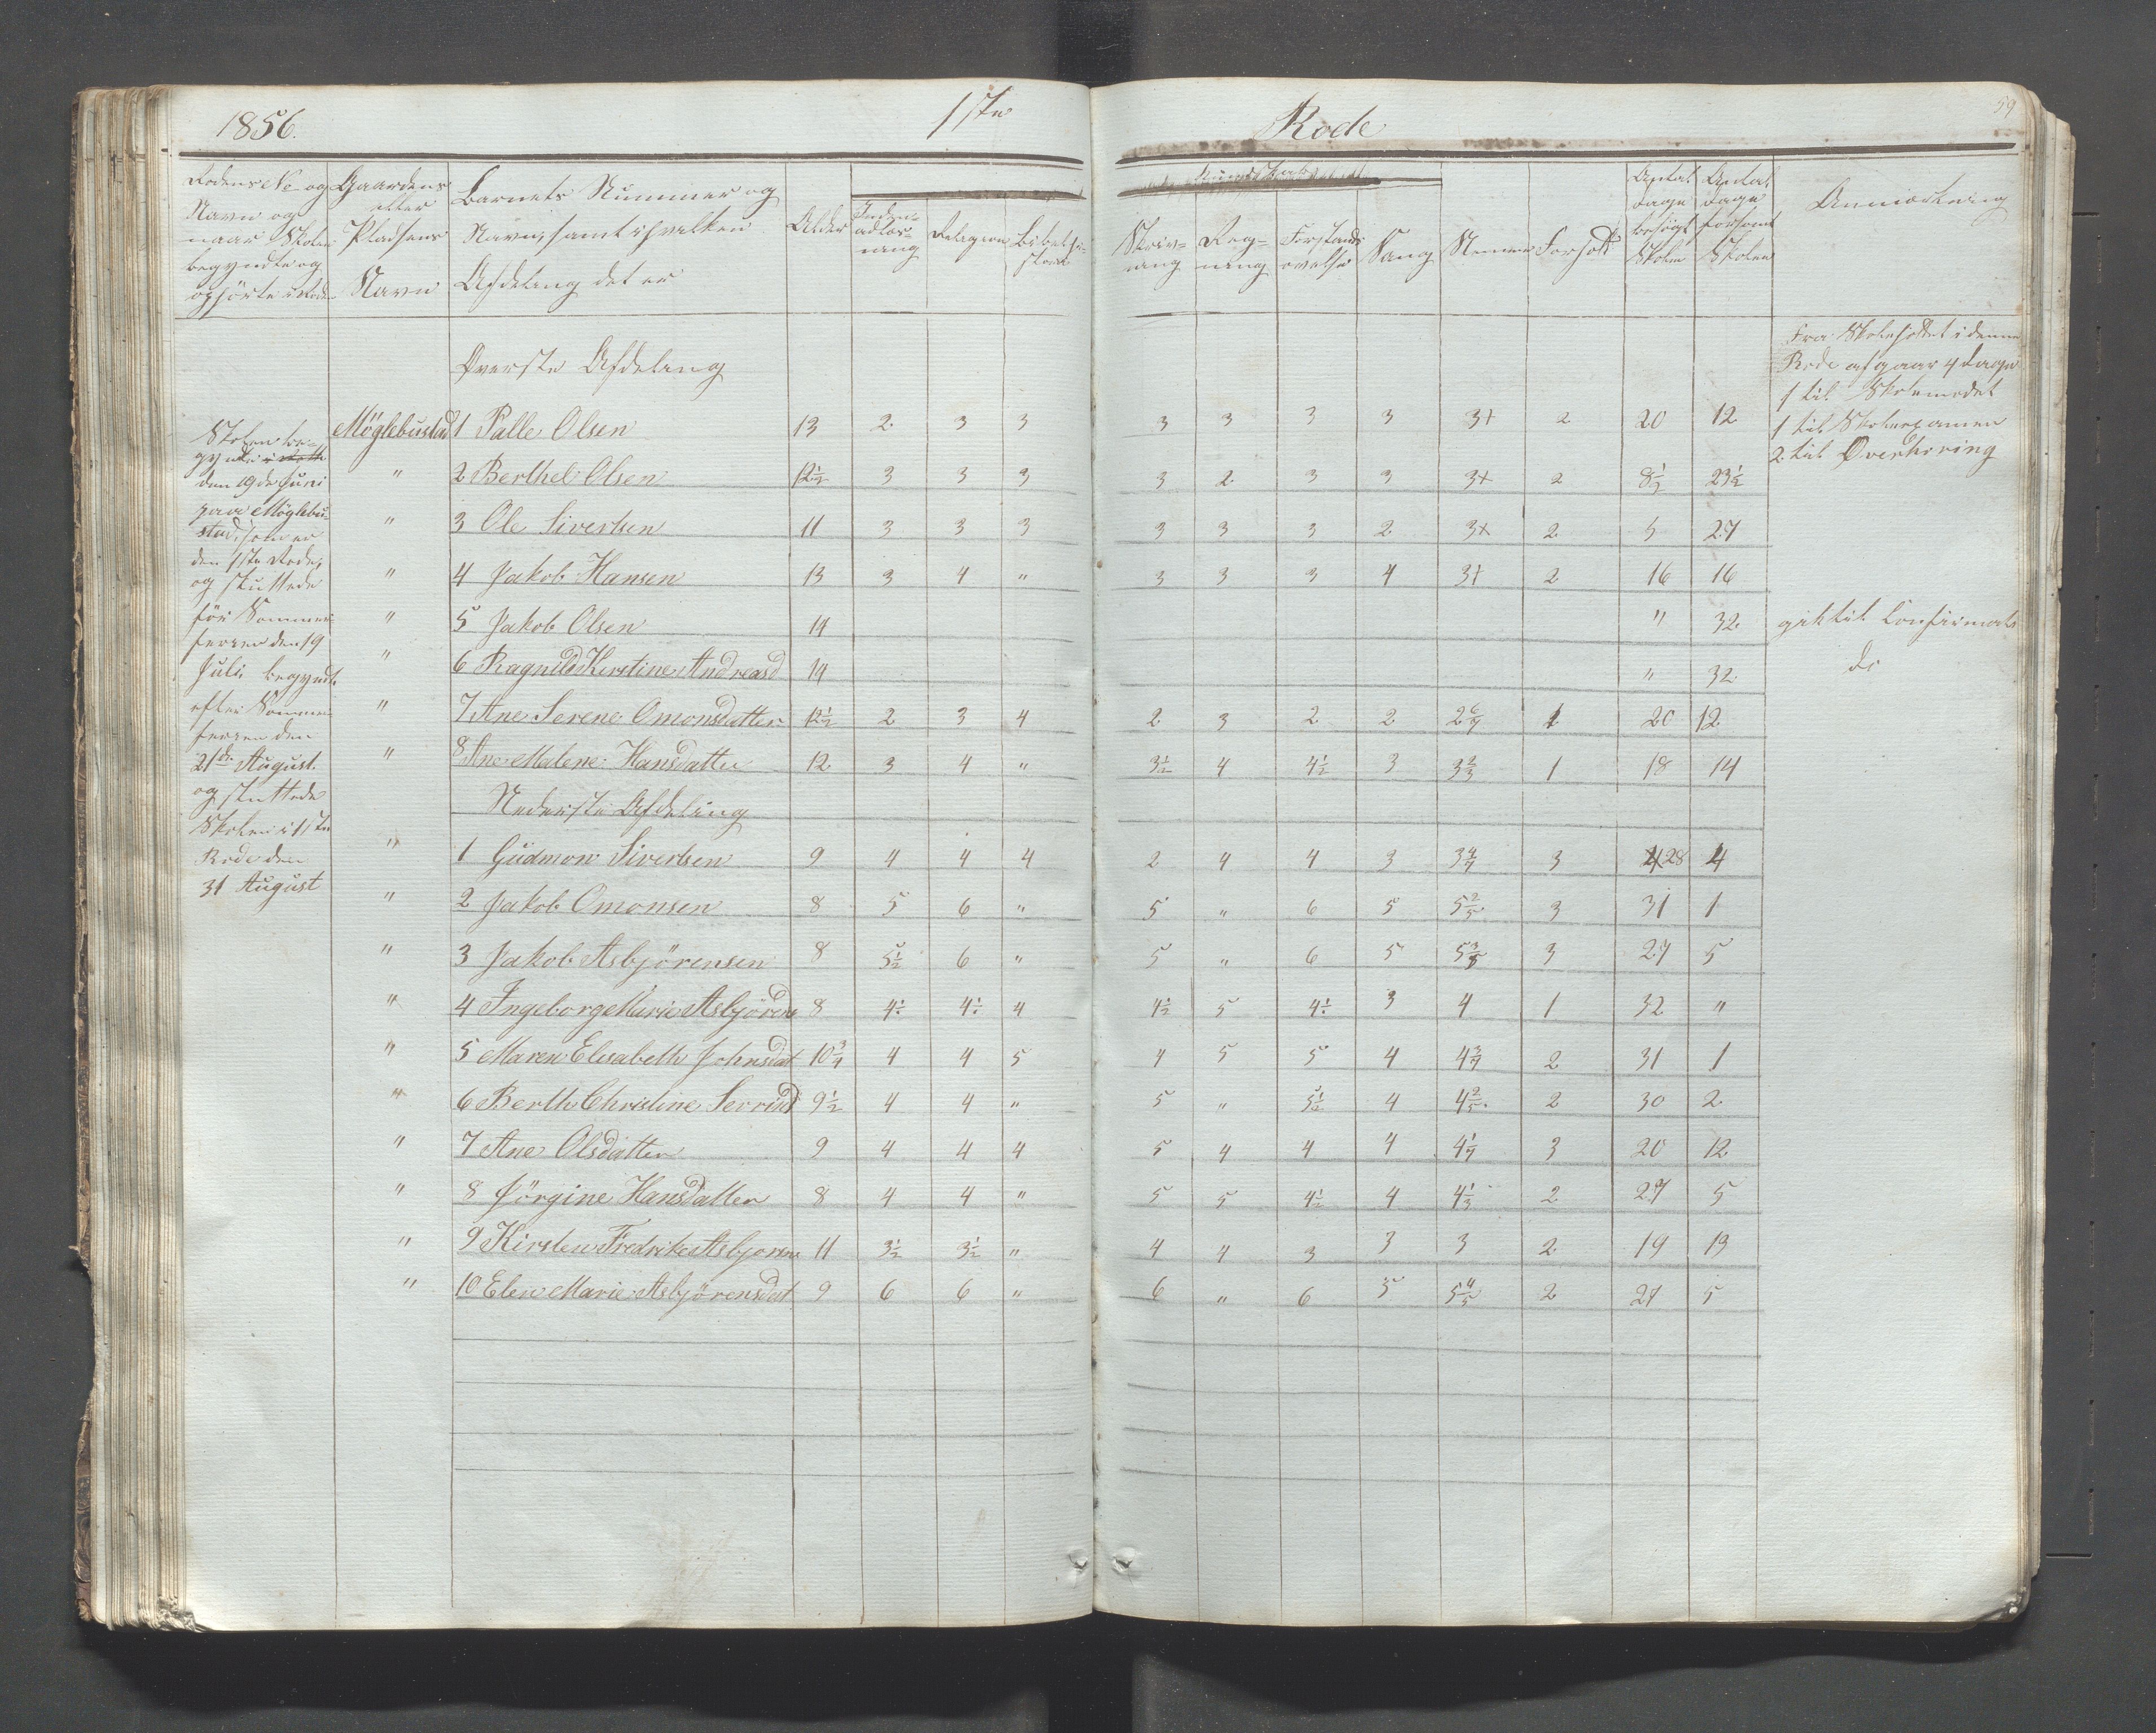 1856. 1ste Rode 59
Rodens No og Navn og naar Skolen begyndte og ophörte i Roden
Gaardens eller Pladsens Navn
Barnets Nummer og Navn, samt i hvilken Afdeling det er
Alder
Indenadlæsning
Religion
Bibelhistorie
Kundskab
Skrivning
Regning
Forstandsövelse
Sang
Nemme
Forhold
Antal Dage besögt Skolen
Antal Dage forsömt Skolen
Anmærkning
Fra Skoleholdet i denne
Rode afgaar 4 Dage
1 til Skolemödet
1 til Skoleexamen
2 til Overhöring
Skolen be-
gyndte
den 19de Juni
paa Möglebu-
stad, som er
den 1ste Rode,
og sluttede
för Sommer-
ferien den 19
Juli, begyndte
efter Sommer-
ferien den
21de August.
og sluttede
Skolen i 1ste
Rode den
31 August
Överste Afdeling
Möglebustad 1 Palle Olsen 13 2 3 3 3 3 3 3 3+ 2 20 12
" 2 Berthel Olsen 12½ 3 3 3 3 2 3 3 3+ 2 8½ 23½
" 3 Ole Sivertsen 11 3 3 3 3 3 3 2 3+ 2 5 27
" 4 Jakob Hansen 13 3 4 " 3 3 3 4 3+ 2 16 16
" 5 Jakob Olsen 14 " 32 gik til Confirmat
" 6 Ragnild Kirstine Andreasd 14 " 32 do
" 7 Ane Serene Omonsdatter 12½ 2 3 4 2 3 2 2 2 6/7 1 20 12
" 8 Ane Malene Hansdatter 12 3 4 " 3½ 4 4½ 3 3 2/3 1 18 14
Nederste Afdeling
" 1 Gudmon Sivertsen 9 4 4 4 2 4 4 3 3 4/7 3 28 4
" 2 Jakob Omonsen 8 5 6 " 5 " 6 5 5 2/5 3 31 1
" 3 Jakob Asbjörensen 8 5½ 6 " 5 " 6 5 5 3/5 3 27 5
" 4 Ingeborg Marie Asbjörens 8 4½ 4½ 4 4½ 5 4½ 3 4 1 32 "
" 5 Maren Elisabeth Johnsdat 10¾ 4 4 5 4 5 5 4 4 3/7 2 31 1
" 6 Berth Christine Serrisd 9½ 4 4 " 5 " 5½ 4 4 2/5 2 30 2
" 7 Ane Olsdatter 9 4 4 4 5 4 4 4 4 1/7 3 20 12
" 8 Jörgine Hansdatter 8 4 4 " 5 5 4½ 4 4 1/3 2 27 5
" 9 Kirsten Fredrike Asbjorens 11 3½ 3½ " 4 4 3 3 3 2 19 13
" 10 Elen Marie Asbjörensdat 9 6 6 " 6 " 6 5 5 4/5 2 27 5